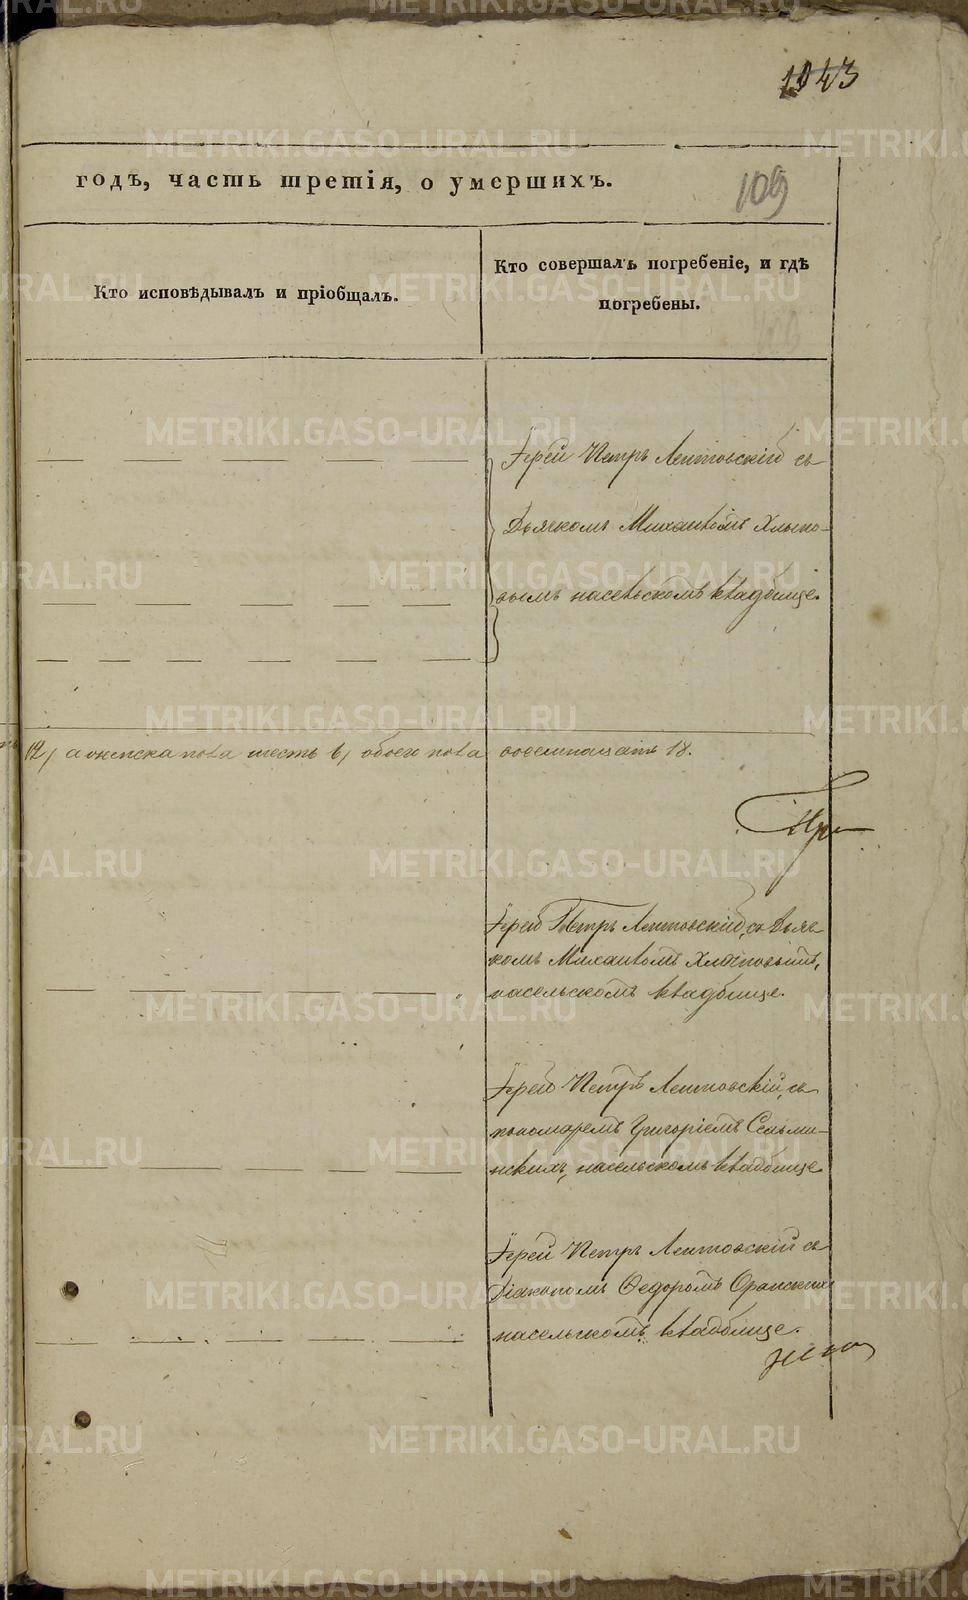 1043
годъ, часть третія, о умершихъ.
109
Кто исповѣдывалъ и пріобщалъ.
Кто совершалъ погребеніе, и гдѣ
погребены.
Іерей Петръ Лептовскій съ
Дьячкомъ Михаиломъ Хлыно-
вымъ насельскомъ кладбище.
12, а женска пола шесть 6, обоего пола восемнацать 18.
Іерей Петръ Лептовскій, съ Дьяч-
комъ Михаиломъ Хлыновымъ,
насельскомъ кладбище.
Іерей Петръ Лептовскій, съ
пономаремъ Григоріемъ
насельскомъ кладбище
Іерей Петръ Лептовскій съ
Діакономъ Ѳедоромъ
насельскомъ кладбище.
METRIKI.GASO-URAL.RU